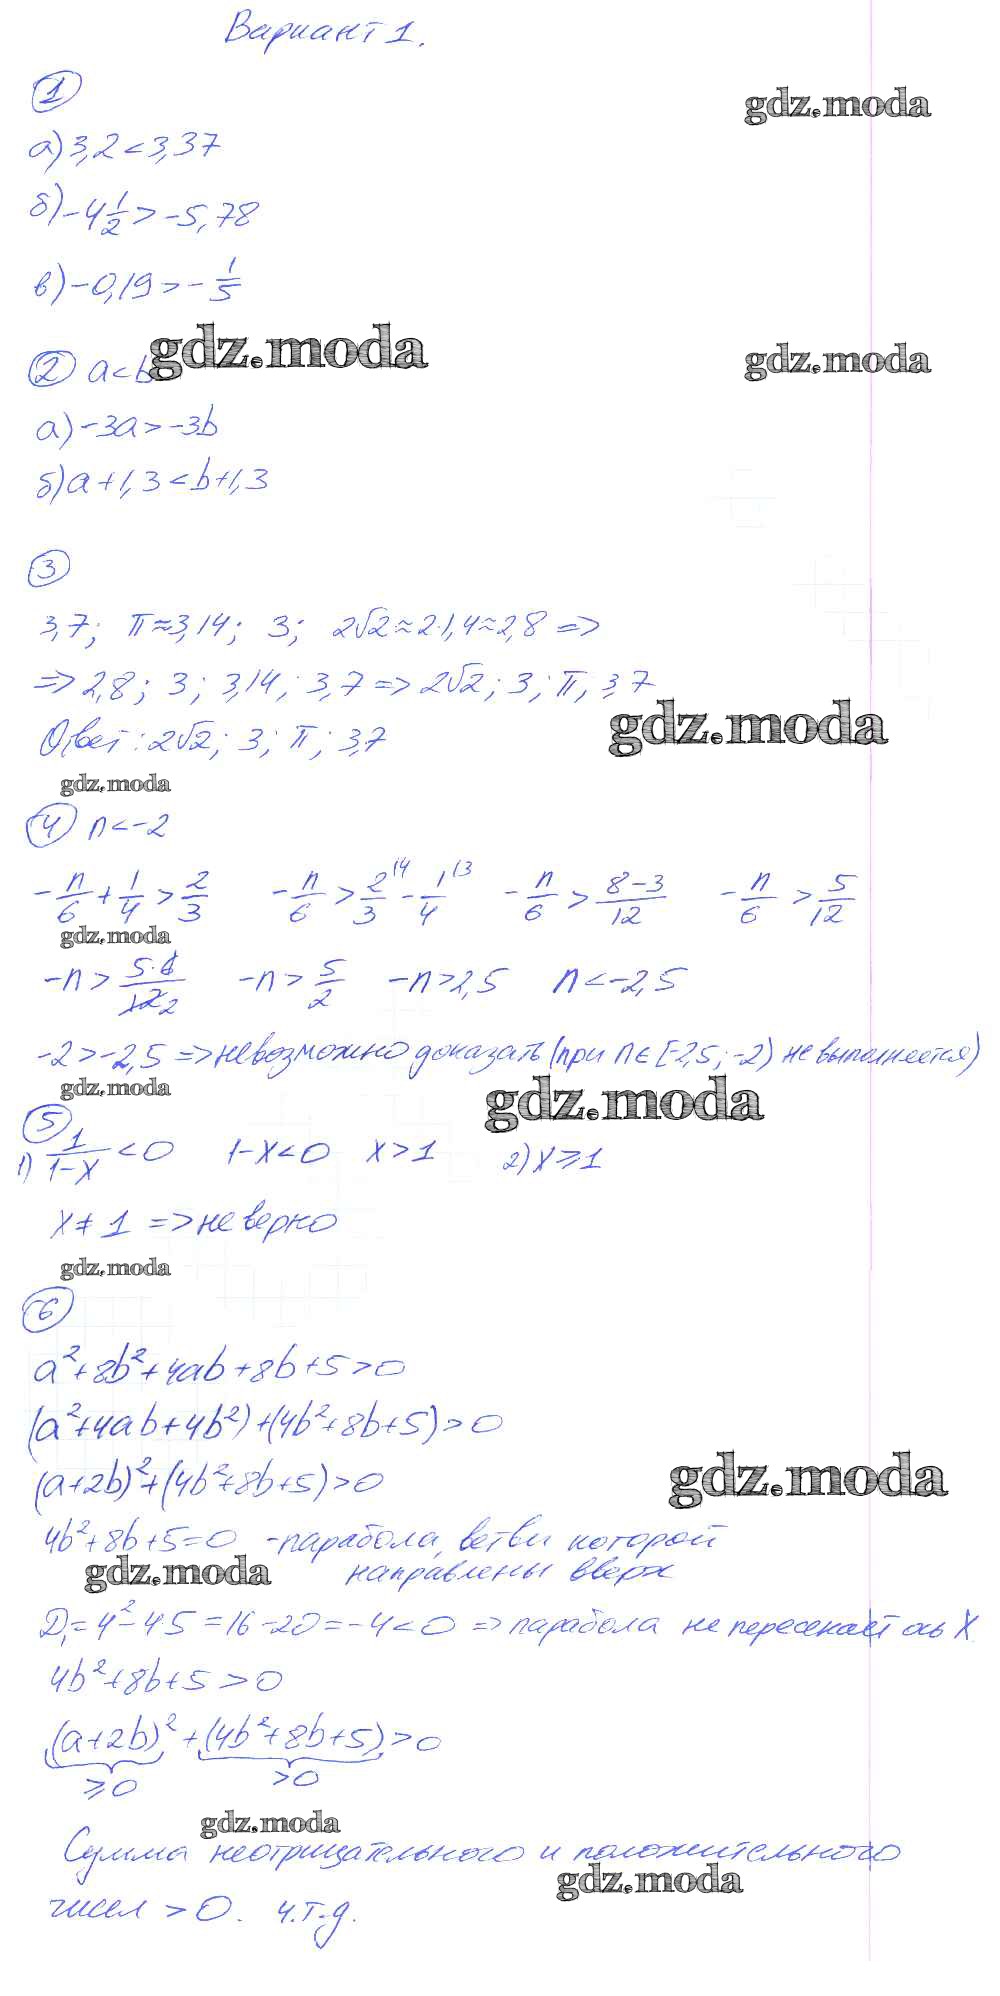 Вариант 1.
①
gdz.moda
а) 3,2 < 3,37
б) -4 1/2 > -5,78
в) -0,19 > -1/5
gdz.moda
② a < b
gdz.moda
а) -3a > -3b
б) a + 1,3 < b + 1,3
③
3,7; π ≈ 3,14; 3; 2√2 ≈ 2·1,4 ≈ 2,8 =>
=> 2,8; 3; 3,14; 3,7 => 2√2; 3; π; 3,7
gdz.moda
Ответ: 2√2; 3; π; 3,7
gdz.moda
④ n < -2
-n/6 + 1/4 > 2/3 -n/6 > 2/3 \4 - 1/4 \3 -n/6 > (8-3)/12 -n/6 > 5/12
gdz.moda
-n > 5·6/12 2 -n > 5/2 -n > 2,5 n < -2,5
-2 > -2,5 => невозможно доказать (при n ∈ [-2,5; -2) не выполняется)
gdz.moda
gdz.moda
⑤
1) 1/(1-x) < 0 1-x < 0 x > 1 2) x ⩾ 1
x ≠ 1 => неверно
gdz.moda
⑥
a² + 8b² + 4ab + 8b + 5 > 0
(a² + 4ab + 4b²) + (4b² + 8b + 5) > 0
(a+2b)² + (4b² + 8b + 5) > 0
gdz.moda
4b² + 8b + 5 = 0 - парабола, ветви которой
направлены вверх
gdz.moda
D₁ = 4² - 4·5 = 16 - 20 = -4 < 0 => парабола не пересекает ось X
4b² + 8b + 5 > 0
(a+2b)² + (4b² + 8b + 5) > 0
⩾0 >0
gdz.moda
Сумма неотрицательного и положительного
gdz.moda
чисел > 0. ч.т.д.